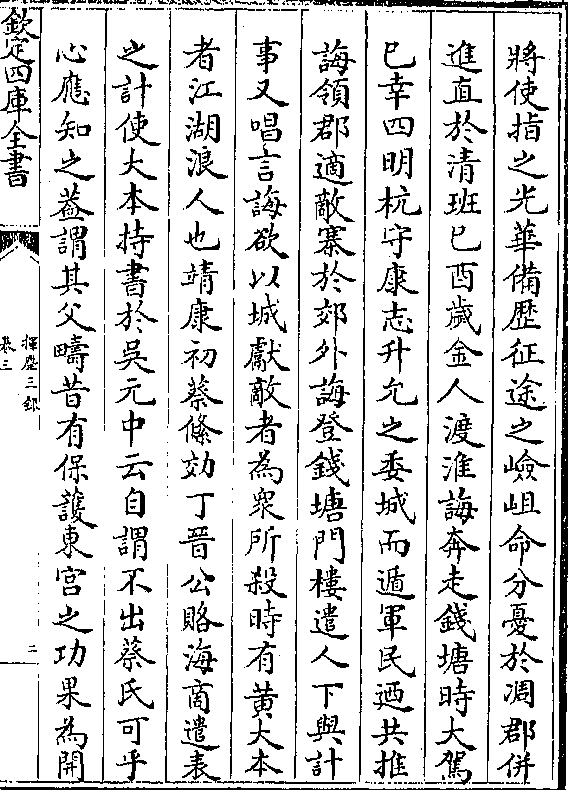 將使指之光華備歴征途之嶮岨命分憂於凋郡併
進直於清班巳酉歲金人渡淮誨奔走錢塘時大駕
已幸四明杭守康志升允之委城而遁軍民廼共推
誨領郡適敵寨於郊外誨登錢塘門樓遣人下與計
事又唱言誨欲以城獻敵者為衆所殺時有黄大本
者江湖浪人也靖康初蔡絛効丁晉公賂海商遣表
之計使大本持書於吳元中云自謂不出蔡氏可乎
心應知之葢謂其父疇昔有保護東宮之功果為開
欽定四庫全書
揮麈三錄
卷三
二